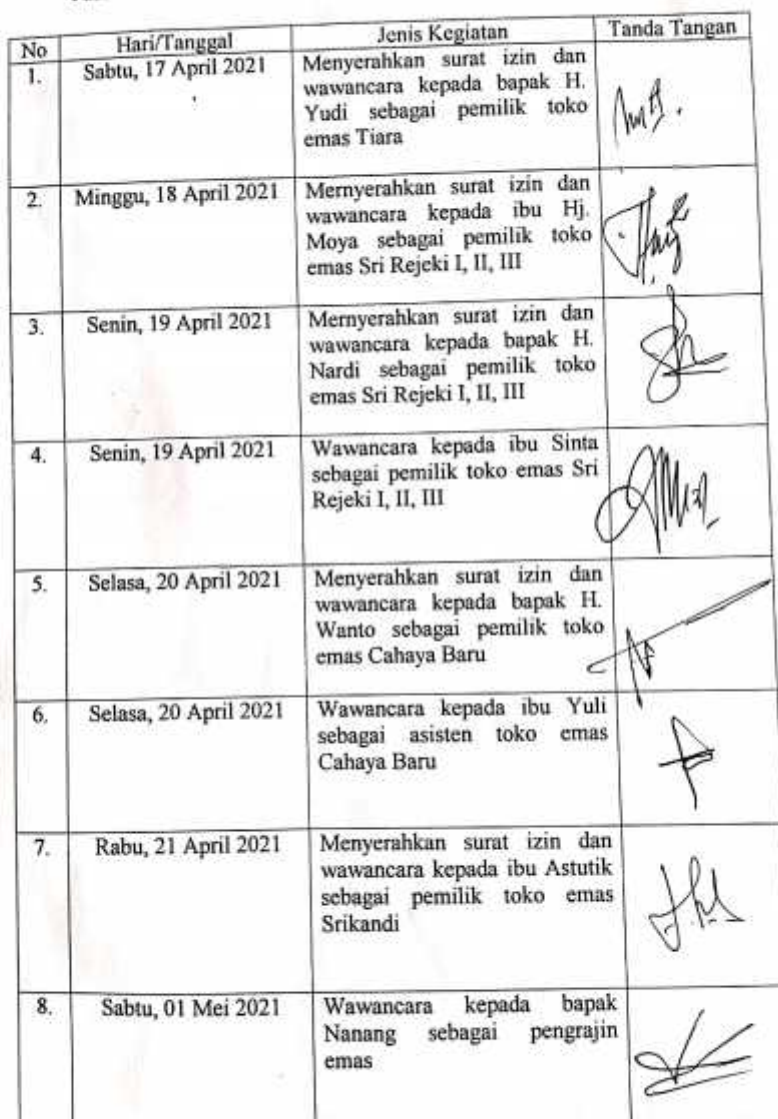 No Hari/Tanggal Jenis Kegiatan Tanda Tangan
1. Sabtu, 17 April 2021 Menyerahkan surat izin dan
wawancara kepada bapak H.
Yudi sebagai pemilik toko
emas Tiara
2. Minggu, 18 April 2021 Mernyerahkan surat izin dan
wawancara kepada ibu Hj.
Moya sebagai pemilik toko
emas Sri Rejeki I, II, III
3. Senin, 19 April 2021 Mernyerahkan surat izin dan
wawancara kepada bapak H.
Nardi sebagai pemilik toko
emas Sri Rejeki I, II, III
4. Senin, 19 April 2021 Wawancara kepada ibu Sinta
sebagai pemilik toko emas Sri
Rejeki I, II, III
5. Selasa, 20 April 2021 Menyerahkan surat izin dan
wawancara kepada bapak H.
Wanto sebagai pemilik toko
emas Cahaya Baru
6. Selasa, 20 April 2021 Wawancara kepada ibu Yuli
sebagai asisten toko emas
Cahaya Baru
7. Rabu, 21 April 2021 Menyerahkan surat izin dan
wawancara kepada ibu Astutik
sebagai pemilik toko emas
Srikandi
8. Sabtu, 01 Mei 2021 Wawancara kepada bapak
Nanang sebagai pengrajin
emas